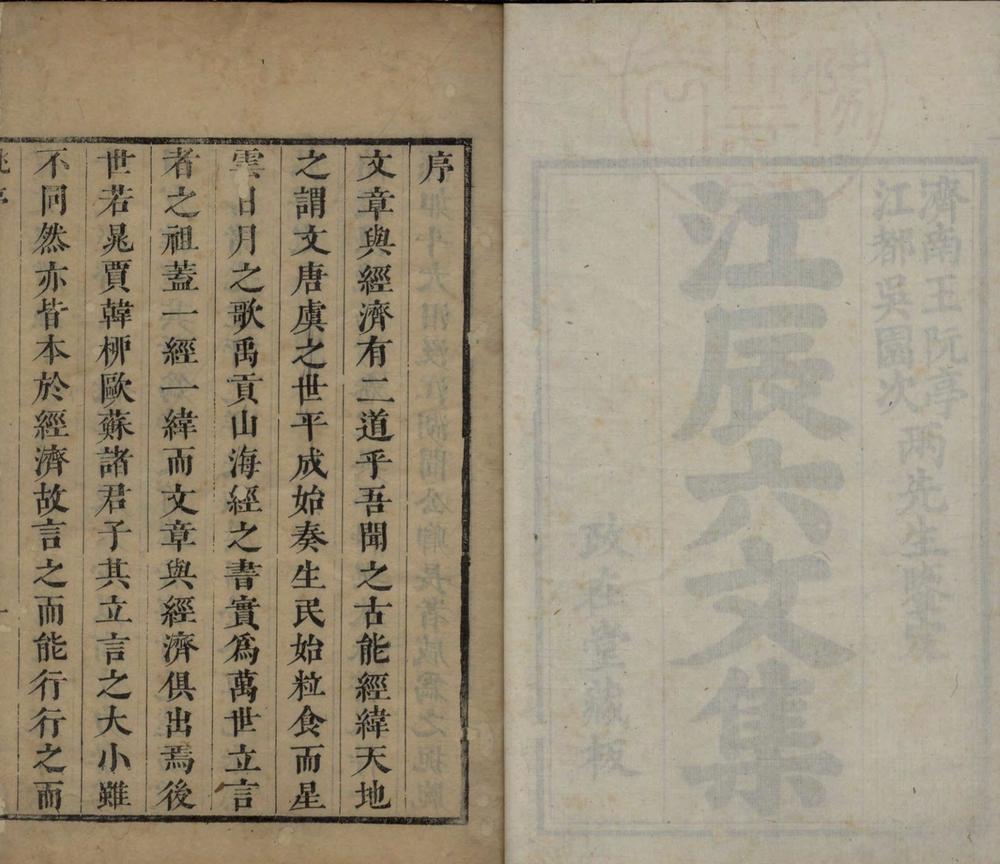 濟南王阮亭
江都吳園次
兩先生
江辰六文集
政在堂藏板
序
文章與經濟有二道乎吾聞之古能經緯天地
之謂文唐虞之世平成始奏生民始粒食而星
雲日月之歌禹貢山海經之書實爲萬世立言
者之祖蓋一經一緯而文章與經濟俱出焉後
世若晁賈韓柳歐蘇諸君子其立言之大小雖
不同然亦皆本於經濟故言之而能行行之而